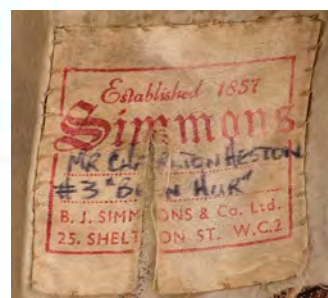 Established 1857
Simmons
MR CHARLTON HESTON
#3 "BEN HUR"
B. J. SIMMONS & Co. Ltd.
25. SHELTON ST. W.C.2